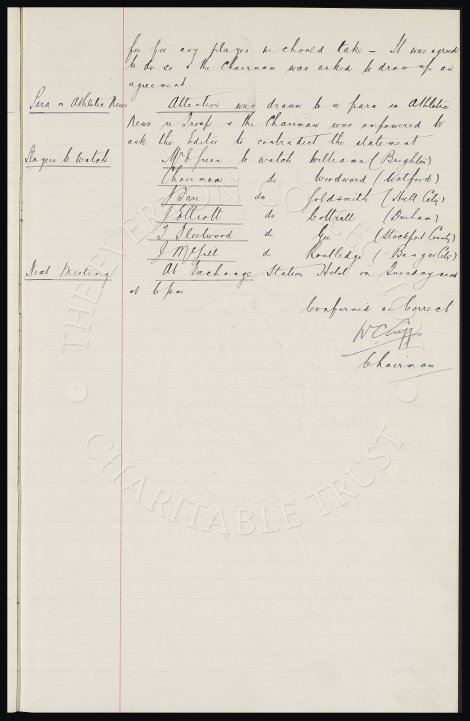 fee for any player we should take – It was agreed
to do so & the Chairman was asked to draw up an
agreement
Para in Athletic News Attention was drawn to a para in Athletic
News re Troup & the Chairman was empowered to
ask the Editor to contradict the statement
Players to Watch Mr E Green to watch Williams (Brighton)
Chairman do Woodward (Watford)
do Goldsmith (Hull City)
J Elliott do Cottrell (Durham)
T Fleetwood do Gee (Stockport County)
J McGill do Routledge (Bangor City)
Next Meeting At Exchange Station Hotel on Tuesday next
at 6 pm
Confirmed as Correct
W C Cuff
Chairman
THE EVERTON COLLECTION
CHARITABLE TRUST